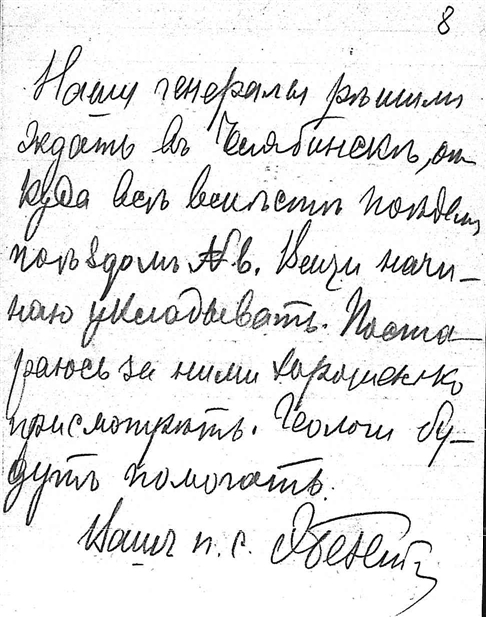 8
Наши генералы рѣшили
ждать въ Челябинскѣ, от
куда всѣ вмѣстѣ поѣдемъ
поѣздомъ № 6. Вещи начи-
наю укладывать. Поста-
раюсь за ними хорошенько
присмотрѣть. Геологи бу-
дутъ помогать.
Вашъ п. с.